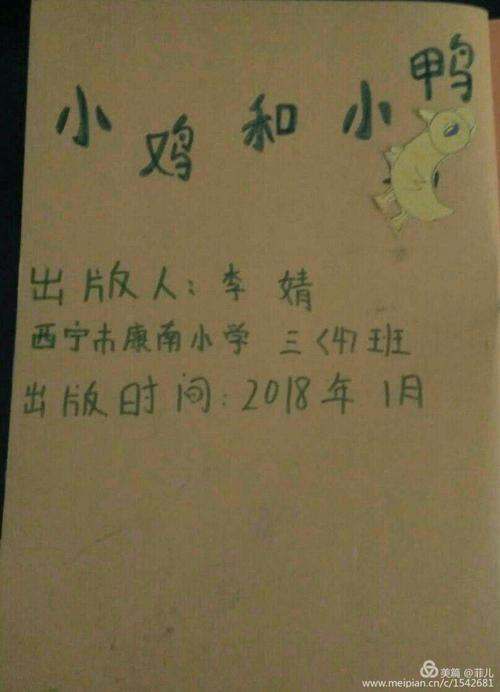 小鸡和小鸭
出版人：李婧
西宁市康南小学 三〈4〉班
出版时间：2018年1月
美篇 @菲儿
www.meipian.cn/c/1542681